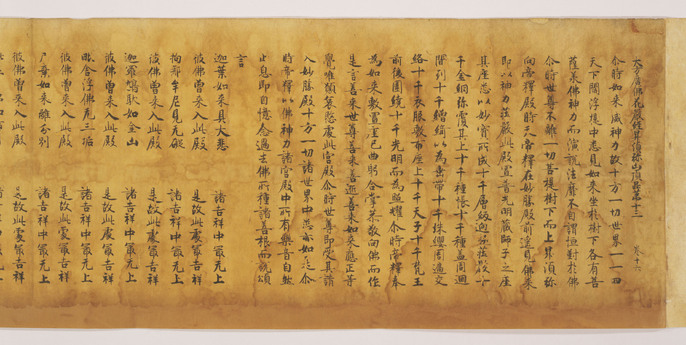 大方廣佛花嚴經昇須弥山頂品第十三 卷十六
尒時如來威神力故十方一切世界一一四
天下閻浮提中悉見如來坐於樹下各有菩
薩承佛神力而演說法靡不自謂恒對於佛
尒時世尊不離一切菩提樹下而上昇須弥
向帝釋殿時天帝釋在妙勝殿前遥見佛來
即以神力莊嚴此殿置普光明藏師子之座
其座悉以妙寶所成十千層級迥極莊嚴十
千金網弥覆其上十千種帳十千種蓋周迴
間列十千繒綺以為垂帶十千珠瓔周遍交
絡十千衣服敷布座上十千天子十千梵王
前後圍繞十千光明而為照耀尒時帝釋奉
為如來敷置座已曲躬合掌恭敬向佛而作
是言善來世尊善來善逝善來如來應正等
覺唯願哀愍處此宮殿尒時世尊即受其請
入妙勝殿十方一切諸世界中悉亦如是尒
時帝釋以佛神力諸宮殿中所有樂音自然
止息即自憶念過去佛所種諸善根而說頌
言
迦葉如來具大悲 諸吉祥中㝡无上
彼佛曾來入此殿 是故此處㝡吉祥
拘那牟尼見无礙 諸吉祥中㝡无上
彼佛曾來入此殿 是故此處㝡吉祥
迦羅鳩馱如金山 諸吉祥中㝡无上
彼佛曾來入此殿 是故此處㝡吉祥
毗舍浮佛无三垢 諸吉祥中㝡无上
彼佛曾來入此殿 是故此處㝡吉祥
尸棄如來離分別 諸吉祥中㝡无上
彼佛曾來入此殿 是故此處㝡吉祥